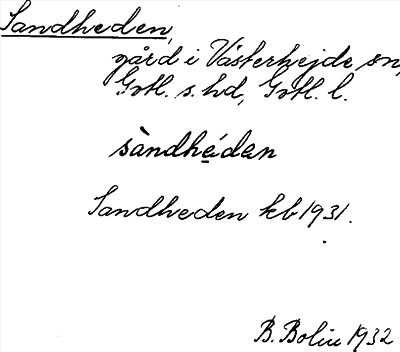 Sandheden,
gård i Västerhejde sn,
Gotl. s. hd, Gotl. l.
sàndhéden
Sandheden kb 1931.
B. Bolin 1932